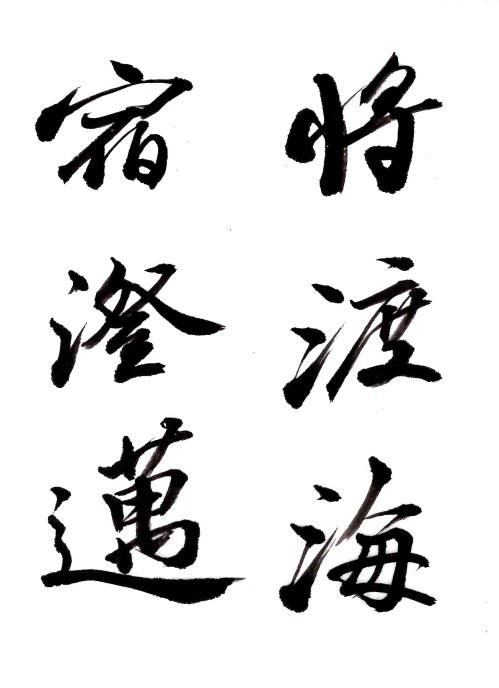 将渡海
宿澄邁